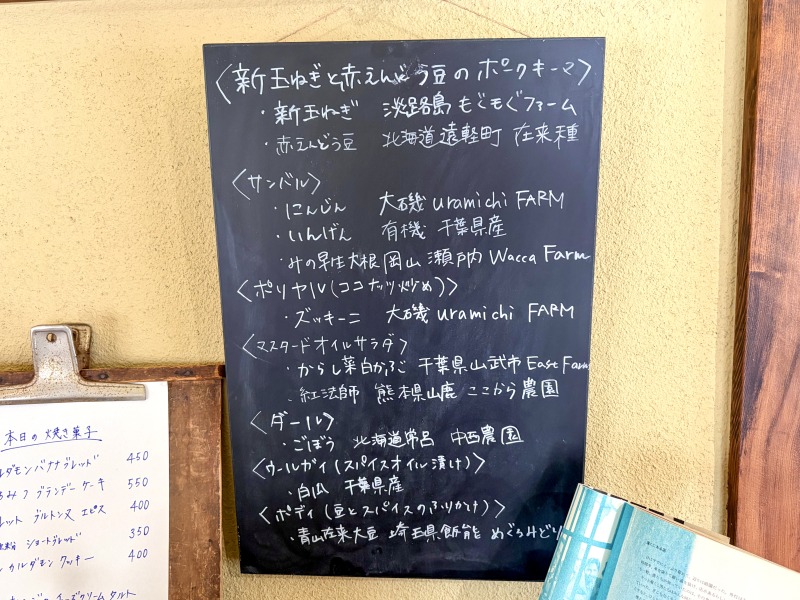 〈新玉ねぎと赤えんどう豆のポークキーマ〉
・新玉ねぎ 淡路島もぐもぐファーム
・赤えんどう豆 北海道遠軽町 在来種
〈サンバル〉
・にんじん 大磯 uramichi FARM
・いんげん 有機 千葉県産
・みの早生大根 岡山 瀬戸内 Wacca Farm
〈ポリヤル(ココナッツ炒め)〉
・ズッキーニ 大磯 uramichi FARM
〈マスタードオイルサラダ〉
・からし菜白かぶ 千葉県山武市 East Farm
・紅法師 熊本県山鹿 ここから農園
〈ダール〉
・ごぼう 北海道常呂 中西農園
〈ウールガイ(スパイスオイル漬け)〉
・白瓜 千葉県産
〈ポディ(豆とスパイスのふりかけ)〉
・青山在来大豆 埼玉県飯能 めぐろみどり
本日の焼き菓子
ルダモンバナナブレッド 450
ブランデーケーキ 550
レット ブルトンヌ エピス 400
ショートブレッド 350
カルダモン クッキー 400
チーズクリームタルト